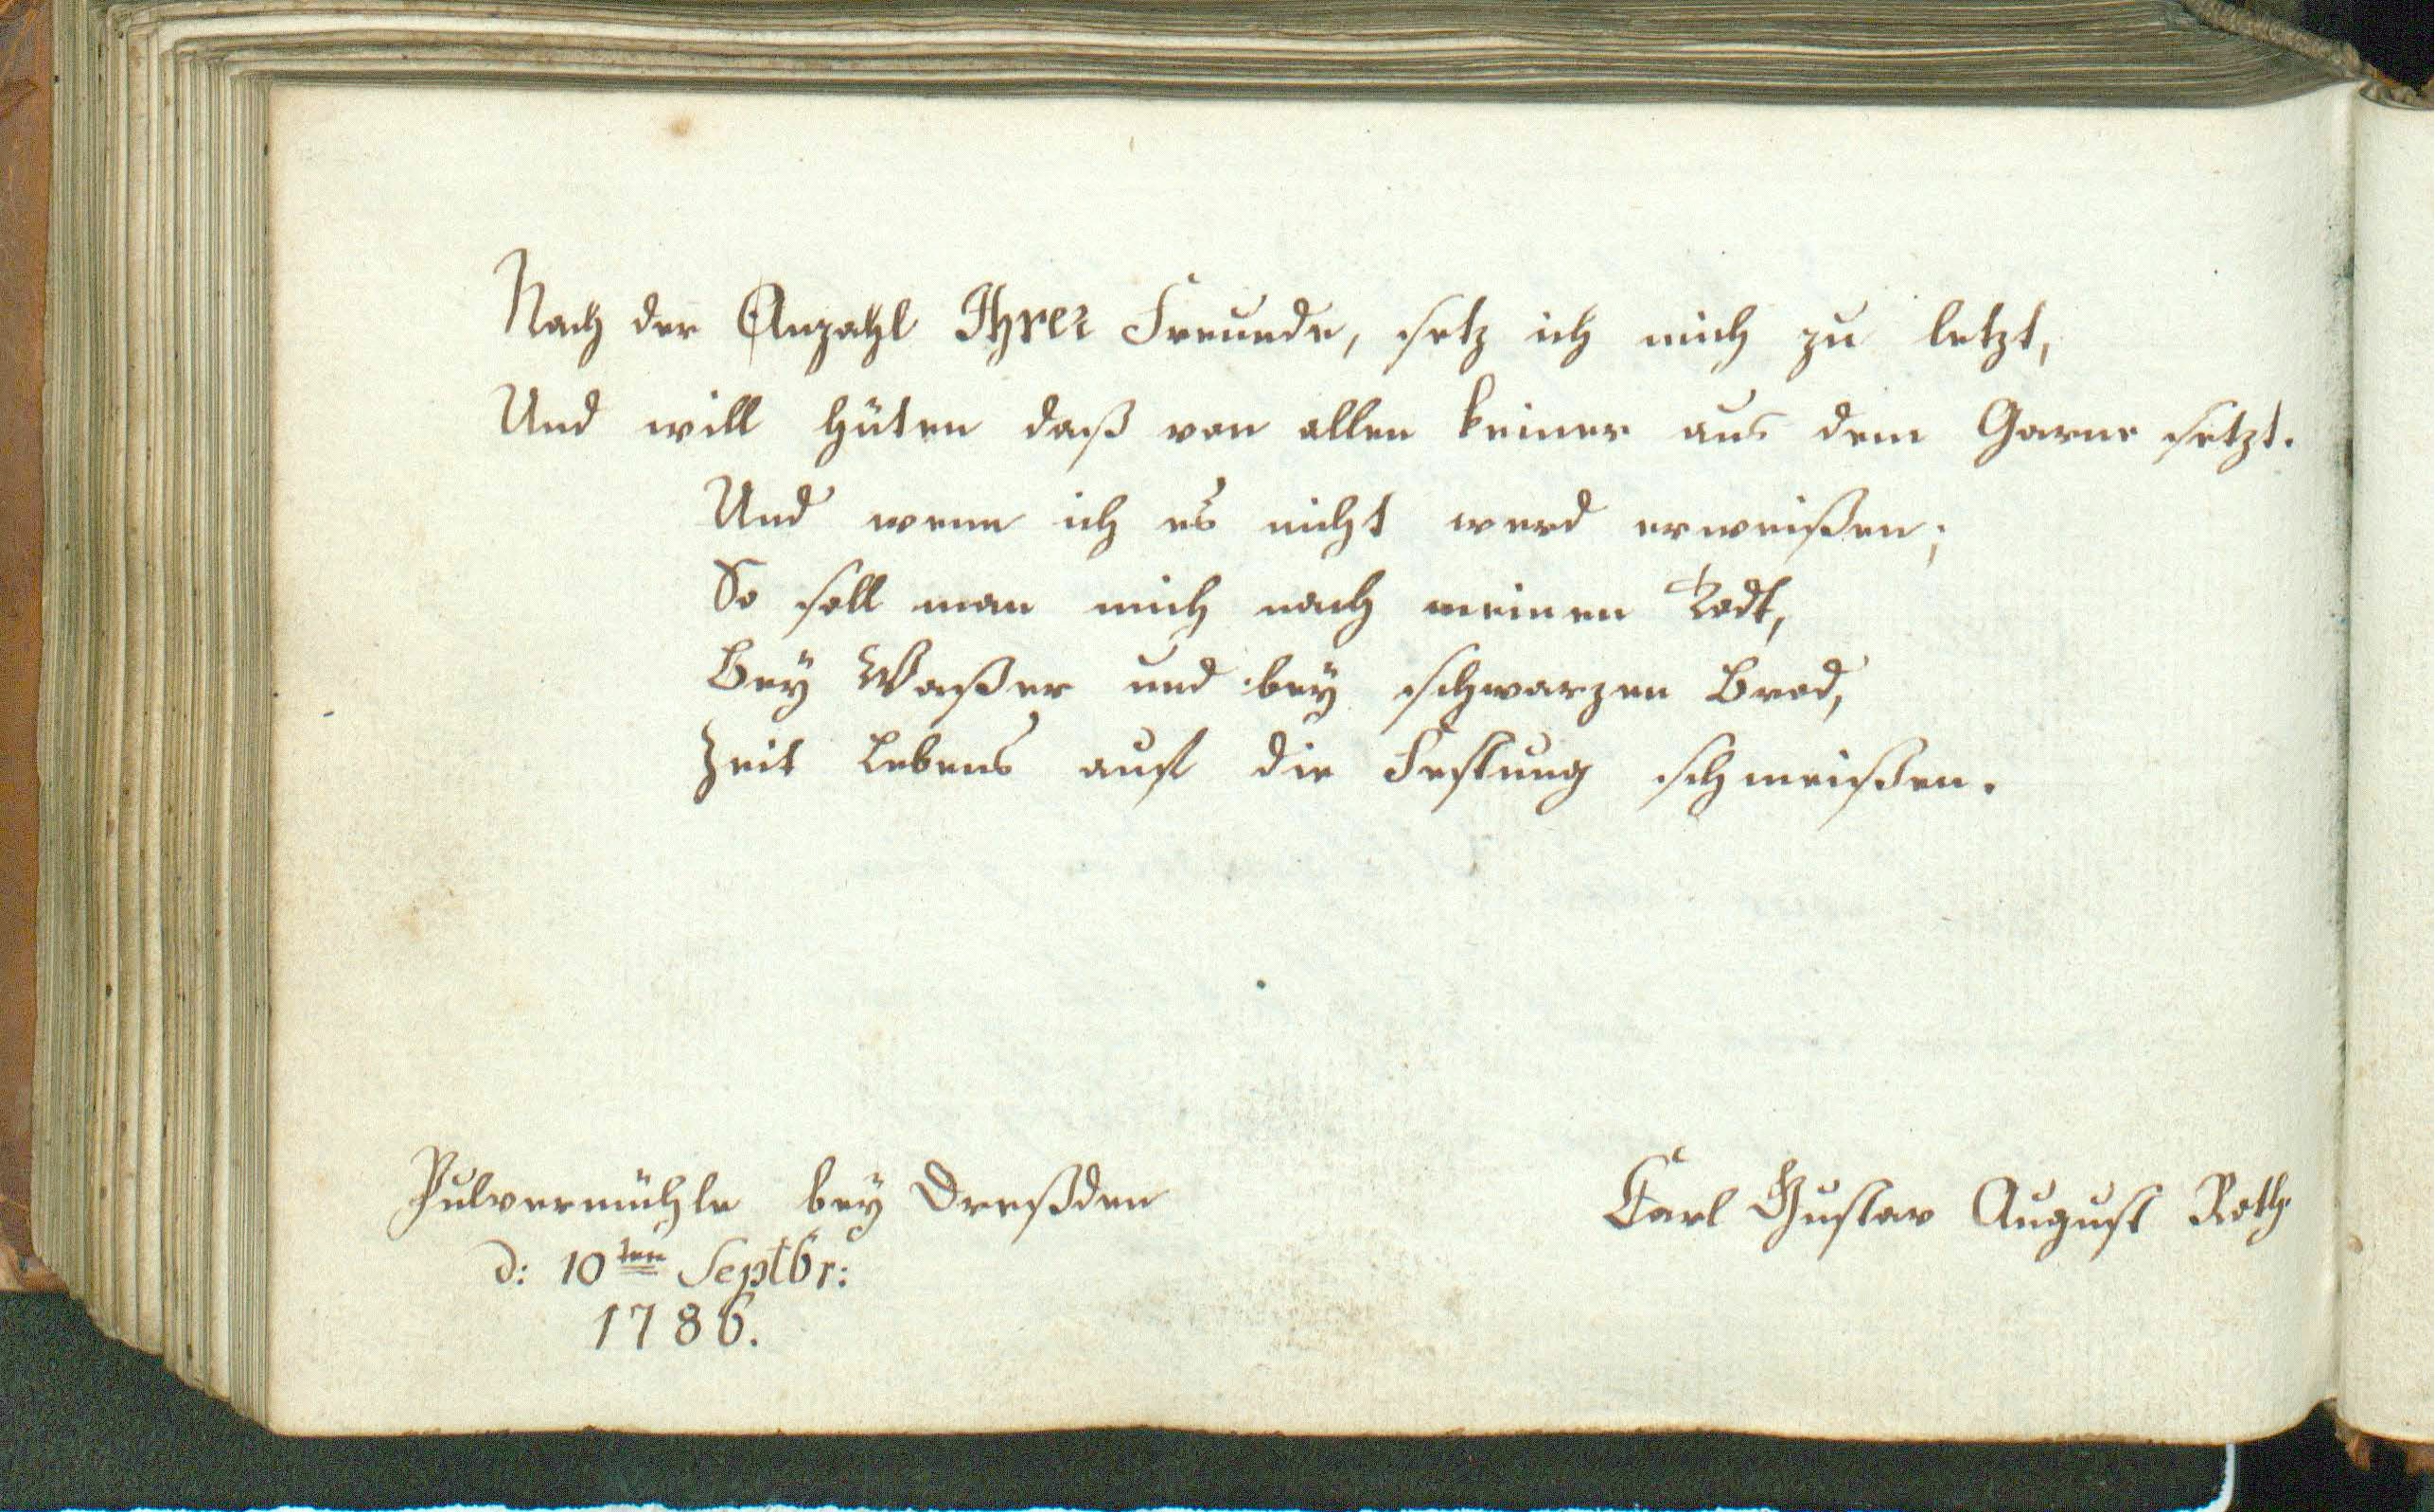 Nach der Anzahl Ihrer Freunde, setz ich mich zu letzt,
Und will hüten daß von allen keiner aus dem Garne setzt.
Und wenn ich es nicht werd erweißen;
So soll man mich nach meinen Todt,
Bey Waßer und bey schwarzen Brod,
Zeit Lebens auf die Festung schmeißen.
Pulvermühle bey Dreßden
d: 10ten Septbr:
1786.
Carl Gustav August Roth